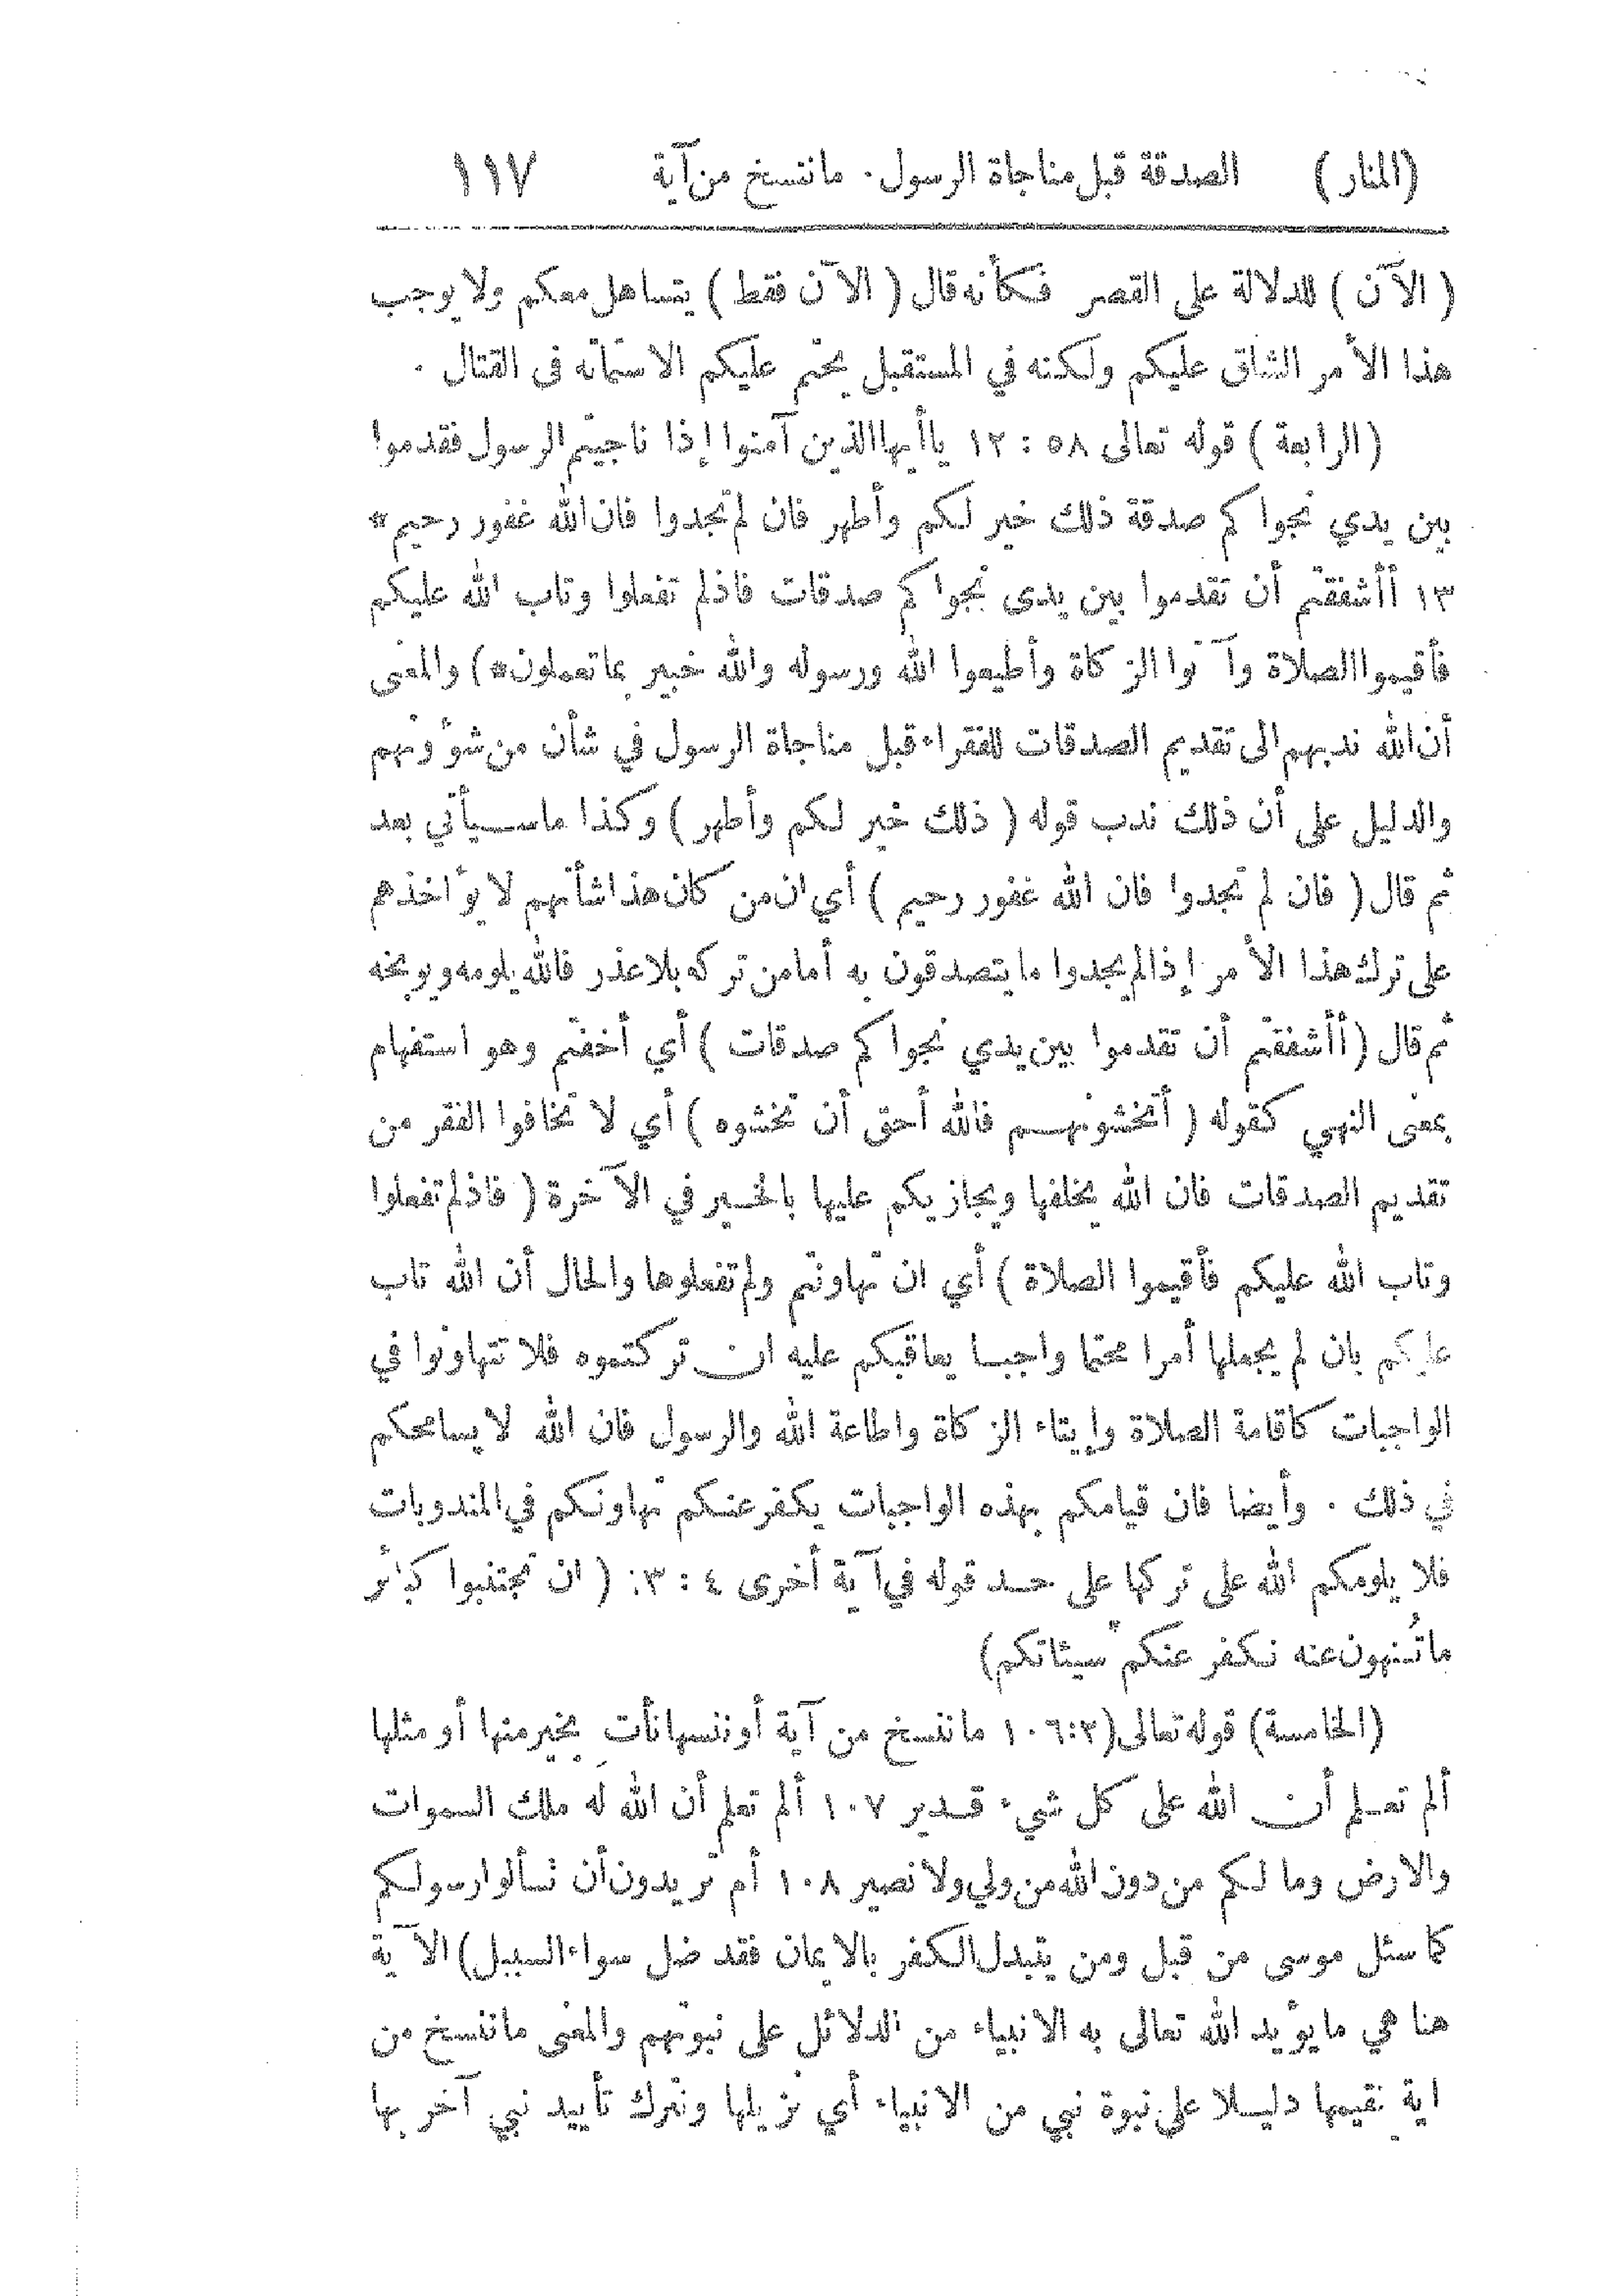 (المنار) الصدقة قبل مناجاة الرسول. ما ننسخ من آية ١١٧
( الآن ) للدلالة على القصر فكأنه قال ( الآن فقط ) يتساهل معكم ولا يوجب
هذا الأمر الشاق عليكم ولكنه في المستقبل يحتم عليكم الاستماتة فى القتال .
(الرابعة ) قوله تعالى ٥٨ : ١٢ ياأيها الذين آمنوا إذا ناجيتم الرسول فقدموا
بين يدي نجواكم صدقة ذلك خير لكم وأطهر فان لم تجدوا فان الله غفور رحيم *
١٣ أأشفقتم أن تقدموا بين يدى نجواكم صدقات فاذلم تفعلوا وتاب الله عليكم
فأقيموا الصلاة وآ وا الزكاة وأطيعوا الله ورسوله والله خبير بما تعملون*) والمعنى
أن الله ندبهم الى تقديم الصدقات للفقراء قبل مناجاة الرسول في شأن من شؤونهم
والدليل على أن ذلك ندب قوله ( ذلك خير لكم وأطهر ) وكذا ماسيأتي بعد
ثم قال ( فان لم تجدوا فان الله غفور رحيم ) أي ان من كان هذا شأنهم لا يؤاخذهم
على ترك هذا الأمر إذا لم يجدوا ما يتصدقون به أما من تركه بلا عذر فالله يلومه ويوبخه
ثم قال ( أأشفقتم أن تقدموا بين يدي نجواكم صدقات ) أي أخفتم وهو استفهام
بمعنى النهي كقوله ( أتخشونهم فالله أحق أن تخشوه ) أي لا تخافوا الفقر من
تقديم الصدقات فان الله يخلفها ويجازيكم عليها بالخير في الآخرة ( فاذلم تفعلوا
وتاب الله عليكم فأقيموا الصلاة ) أي ان تهاونتم ولم تفعلوها والحال أن الله تاب
عليكم بان لم يجعلها أمرا محتما واجبا يعاقبكم عليه ان تركتموه فلا تتهاونوا في
الواجبات كاقامة الصلاة وإيتاء الزكاة واطاعة الله والرسول فان الله لا يسامحكم
في ذلك . وأيضا فان قيامكم بهذه الواجبات يكفر عنكم تهاونكم في المندوبات
فلا يلومكم الله على تركها على حد قوله في آية أخرى ٤ : ٣: ( ان تجتنبوا كبائر
ما تُنهون عنه نكفر عنكم سيئاتكم)
(الخامسة) قوله تعالى (٢:١٠٦ ما ننسخ من آية أو ننسها نأتِ بخير منها أو مثلها
ألم تعلم أن الله على كل شيء قدير ١٠٧ ألم تعلم أن الله له ملك السموات
والارض وما لكم من دون الله من ولي ولا نصير ١٠٨ أم تريدون أن تسألوا رسولكم
كما سئل موسى من قبل ومن يتبدل الكفر بالايمان فقد ضل سواء السبيل) الآية
هنا هي ما يؤيد الله تعالى به الانبياء من الدلائل على نبوتهم والمعنى ما ننسخ من
اية نقيمها دليلا على نبوة نبي من الانبياء أي نزيلها ونترك تأييد نبي آخر بها